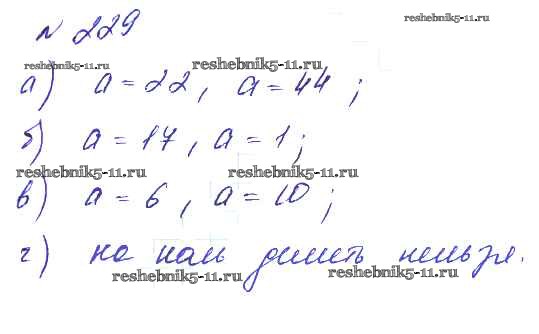 reshebnik5-11.ru
№ 229
reshebnik5-11.ru reshebnik5-11.ru
а) a = 22, a = 44;
б) a = 17, a = 1;
reshebnik5-11.ru reshebnik5-11.ru
в) a = 6, a = 10;
г) на ноль делить нельзя.
reshebnik5-11.ru reshebnik5-11.ru